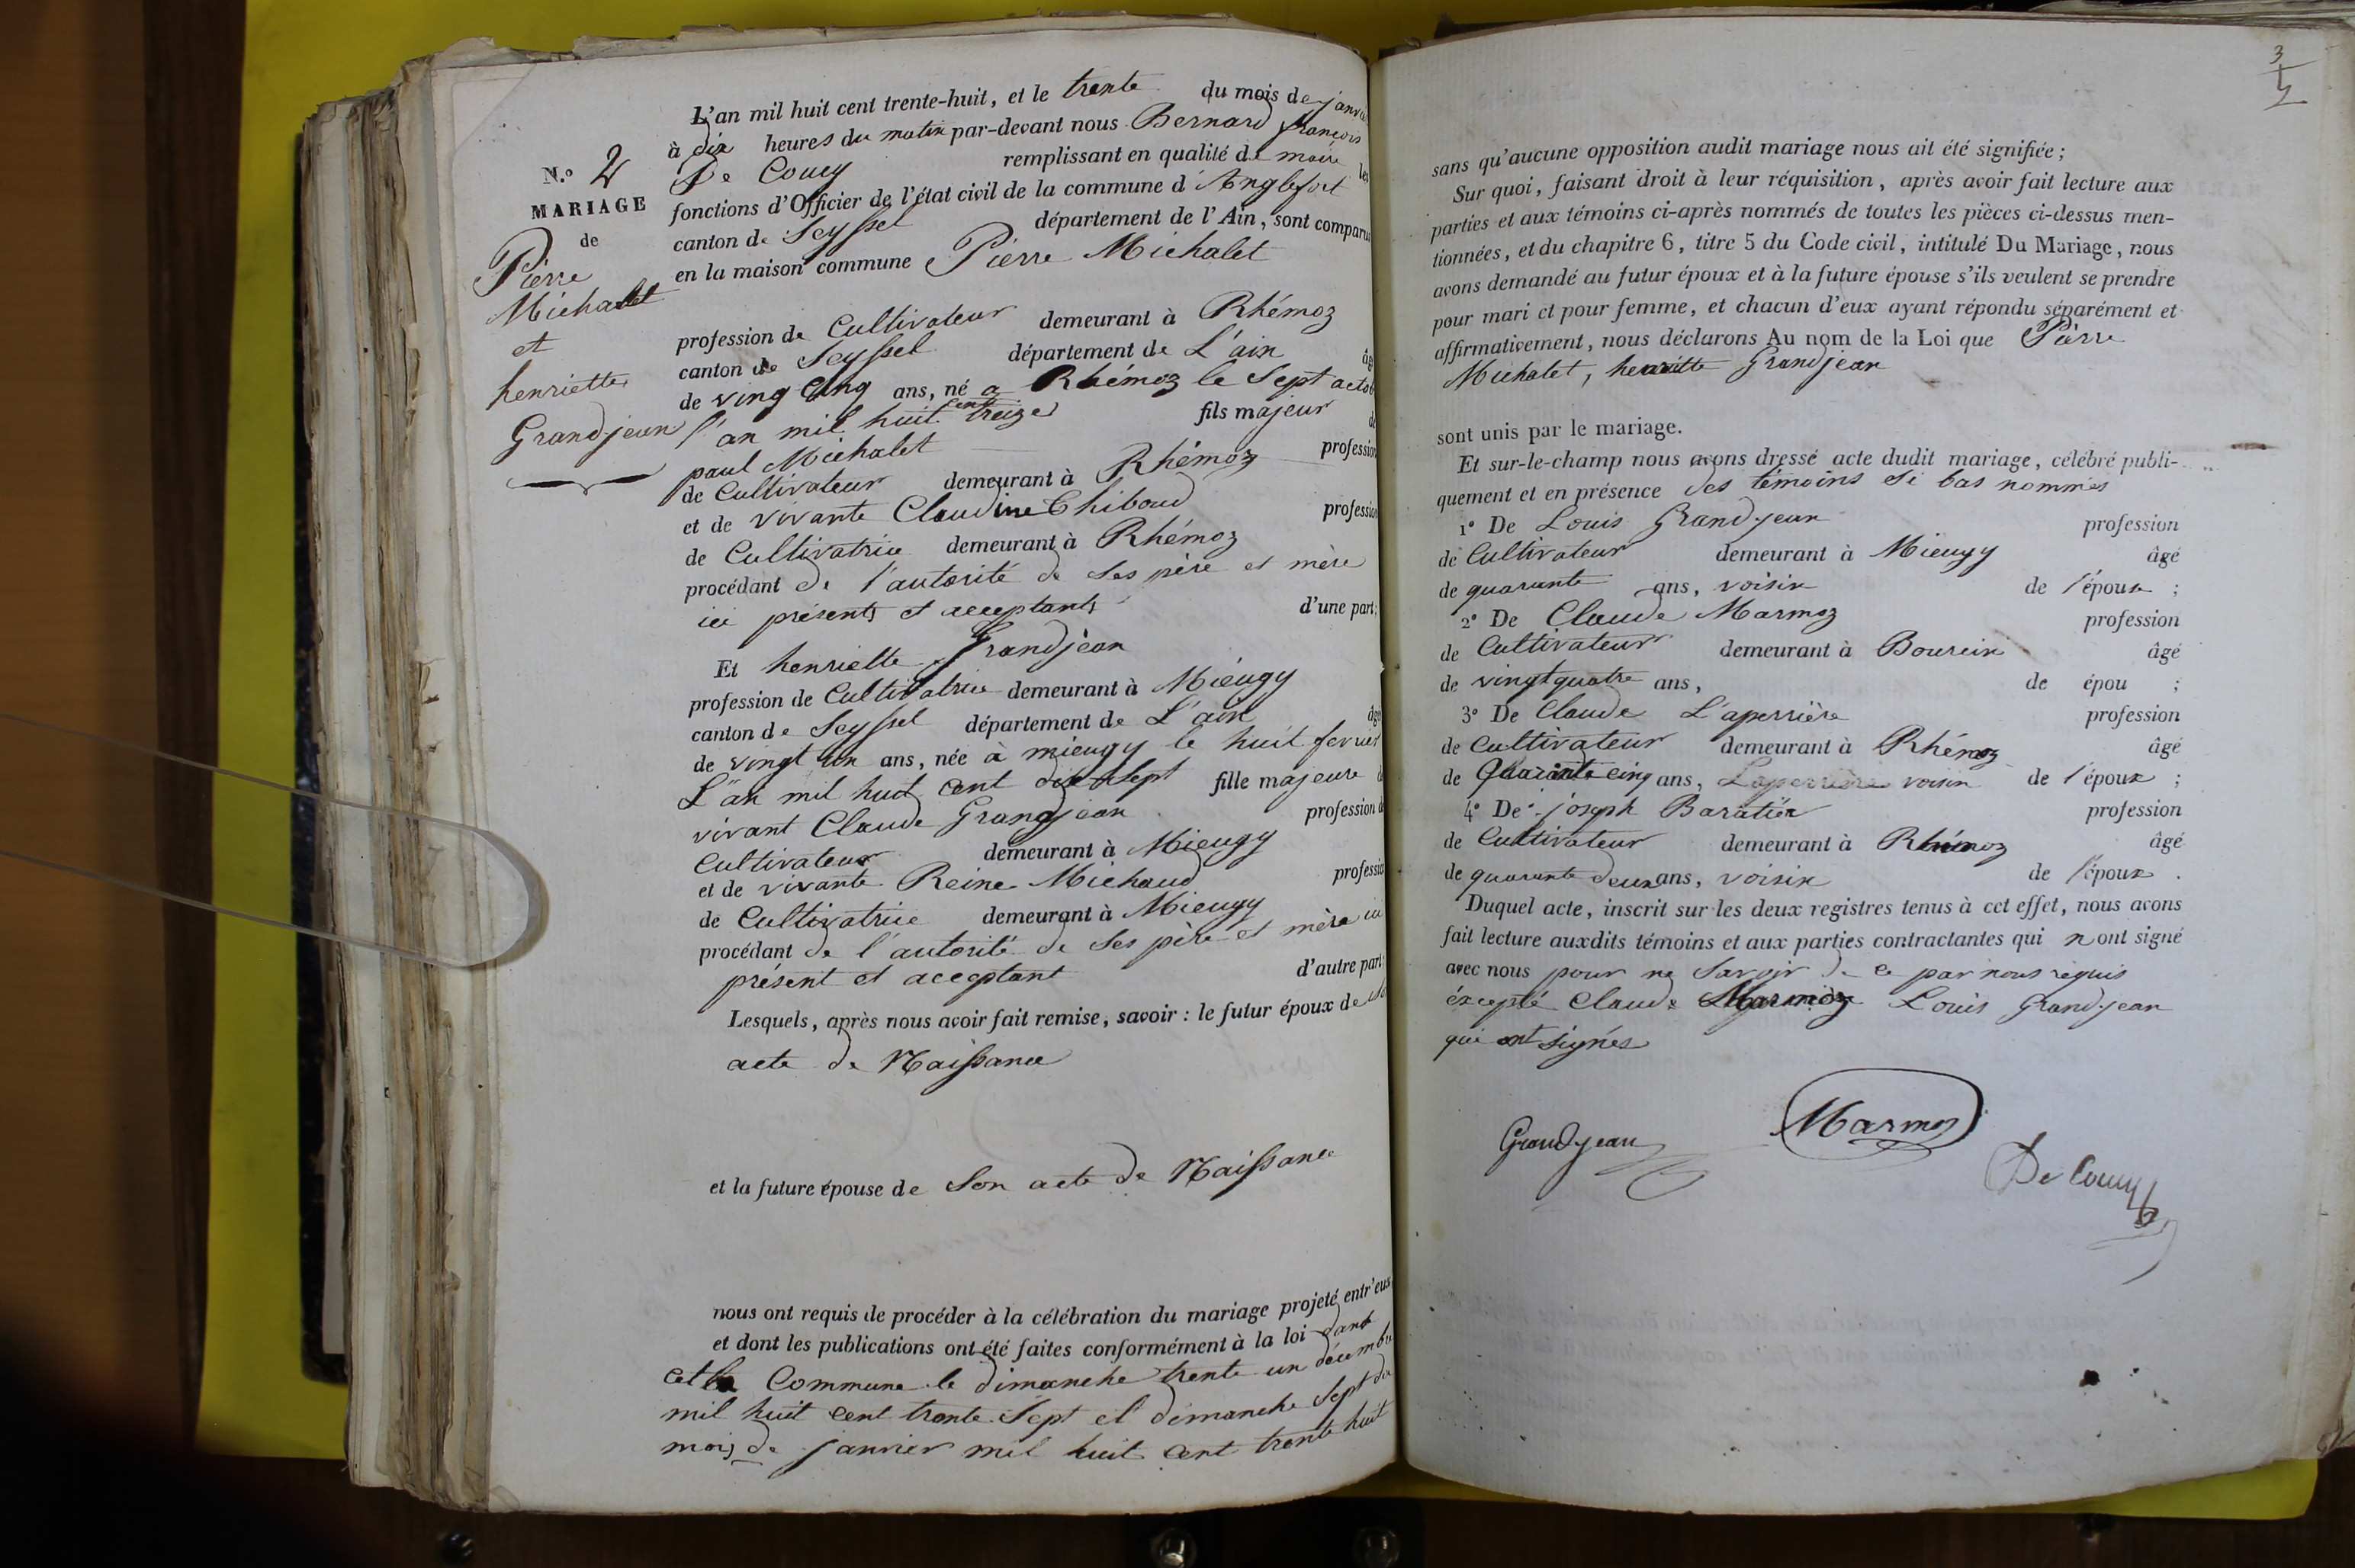 N.o 2
MARIAGE
de
Pierre
Michallet
et
henriette
Grandjean
L'an mil huit cent trente-huit, et le trente du mois de janvier
à dix heures du matin par-devant nous Bernard françois
De Coucy remplissant en qualité de maire les
fonctions d'Officier de l'état civil de la commune d'Anglefort
canton de Seyssel département de l'Ain, sont comparus
en la maison commune Pierre Michalet
profession de Cultivateur demeurant à Rhémoz
canton de Seyssel département de L'ain âgé
de ving Cinq ans, né a Rhémoz le Sept octobre
l'an mil huit cent treize fils majeur de
paul Michalet profession
de Cultivateur demeurant à Rhémoz
et de vivante Claudine Thiboud profession
de Cultivatrice demeurant à Rhémoz
procédant de l'autorité de ses père et mère
ici présents et acceptants d'une part;
Et henriette Grandjean
profession de Cultivatrice demeurant à Miéugy
canton de Seyssel département de L'ain âgée
de vingt un ans, née à mieugy le huit fevrier
L'an mil huit cent dix Sept fille majeure de
vivant Claude Grandjean profession de
Cultivateur demeurant à Mieugy
et de vivante Reine Michaud profession
de Cultivatrice demeurant à Mieugy
procédant de l'autorité de ses père et mère ici
présent et acceptant d'autre part;
Lesquels, après nous avoir fait remise, savoir : le futur époux de son
acte de Naissance
et la future épouse de Son acte de Naissance
nous ont requis de procéder à la célébration du mariage projeté entr'eux
et dont les publications ont été faites conformément à la loi dans
cette Commune le dimanche trente un décembre
mil huit cent trente Sept et dimanche Sept du
mois de janvier mil huit cent trente huit
3
sans qu'aucune opposition audit mariage nous ait été signifiée;
Sur quoi, faisant droit à leur réquisition, après avoir fait lecture aux
parties et aux témoins ci-après nommés de toutes les pièces ci-dessus men-
tionnées, et du chapitre 6, titre 5 du Code civil, intitulé Du Mariage, nous
avons demandé au futur époux et à la future épouse s'ils veulent se prendre
pour mari et pour femme, et chacun d'eux ayant répondu séparément et
affirmativement, nous déclarons Au nom de la Loi que Pierre
Michalet, henriette Grandjean
sont unis par le mariage.
Et sur-le-champ nous avons dressé acte dudit mariage, célébré publi-
quement et en présence des témoins si bas nommés
1° De Louis Grandjean profession
de Cultivateur demeurant à Mieugy âgé
de quarante ans, voisin de l'épouse ;
2° De Claude Marmoz profession
de Cultivateur demeurant à Bourcin âgé
de vingt quatre ans, de épou ;
3° De Claude L'aperrière profession
de Cultivateur demeurant à Rhémoz âgé
de Quarante cinq ans, Laperrière voisin de l'époux ;
4° De joseph Baratier profession
de Cultivateur demeurant à Rhémoz âgé
de quarante deux ans, voisin de l'époux .
Duquel acte, inscrit sur les deux registres tenus à cet effet, nous avons
fait lecture auxdits témoins et aux parties contractantes qui n ont signé
avec nous pour ne Savoir de ce par nous requis
éxcepté Claude Marmoz Louis Grandjean
qui ont signés
Grandjean
Marmoz
De Coucy